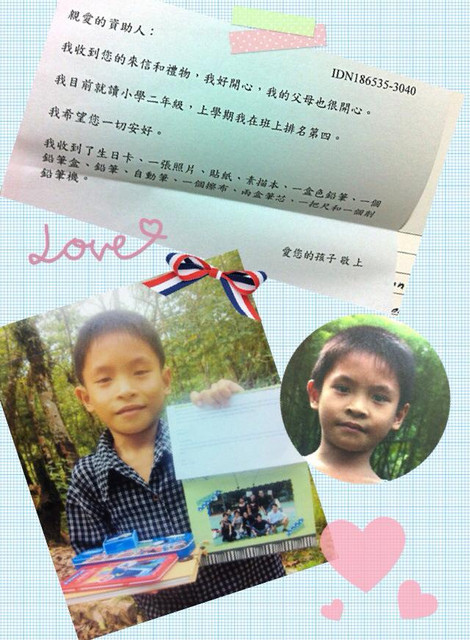 親愛的資助人：
IDN186535-3040
我收到您的來信和禮物，我好開心，我的父母也很開心。
我目前就讀小學二年級，上學期我在班上排名第四。
我希望您一切安好。
我收到了生日卡、一張照片、貼紙、素描本、一盒色鉛筆、一個
鉛筆盒、鉛筆、自動筆、一個擦布、兩盒筆芯、一把尺和一個削
鉛筆機。
愛您的孩子敬上
Love